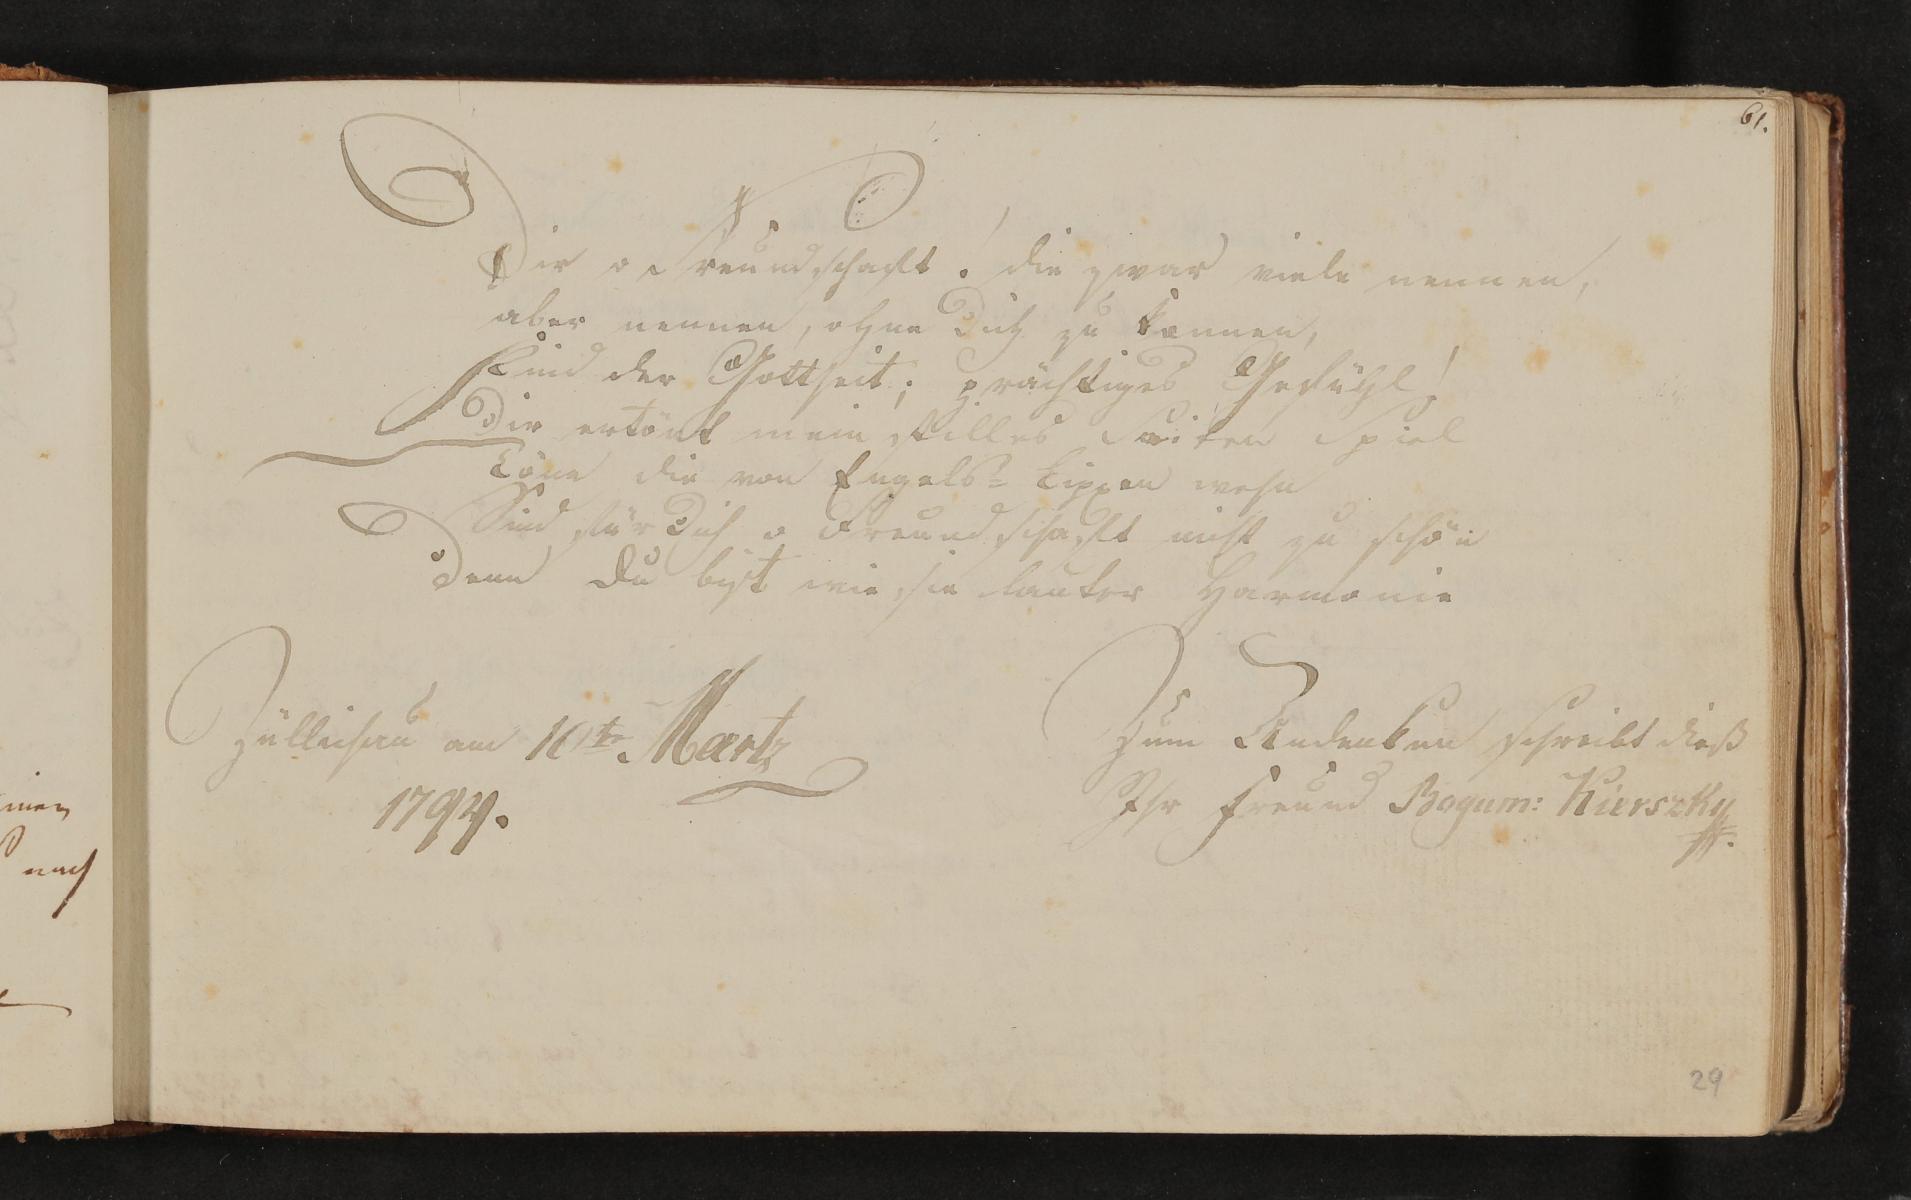 61.
Dir o Freundschaft! die zwar viele nennen,
aber nennen, ohne Dich zu kennen,
Kind der Gottheit; prächtiges Gefühl!
Dir ertönt mein stilles Saiten Spiel
Töne die von Engels= Lippen wehn
Sind für Dich o Freundschaft nicht zu schön
Denn Du bist wie sie lauter Harmonie
Züllichau am 10te Maertz
179
Zum Andenken schreibt dieß
Ihr Freund Bogum: Kierszky
29
men
nach